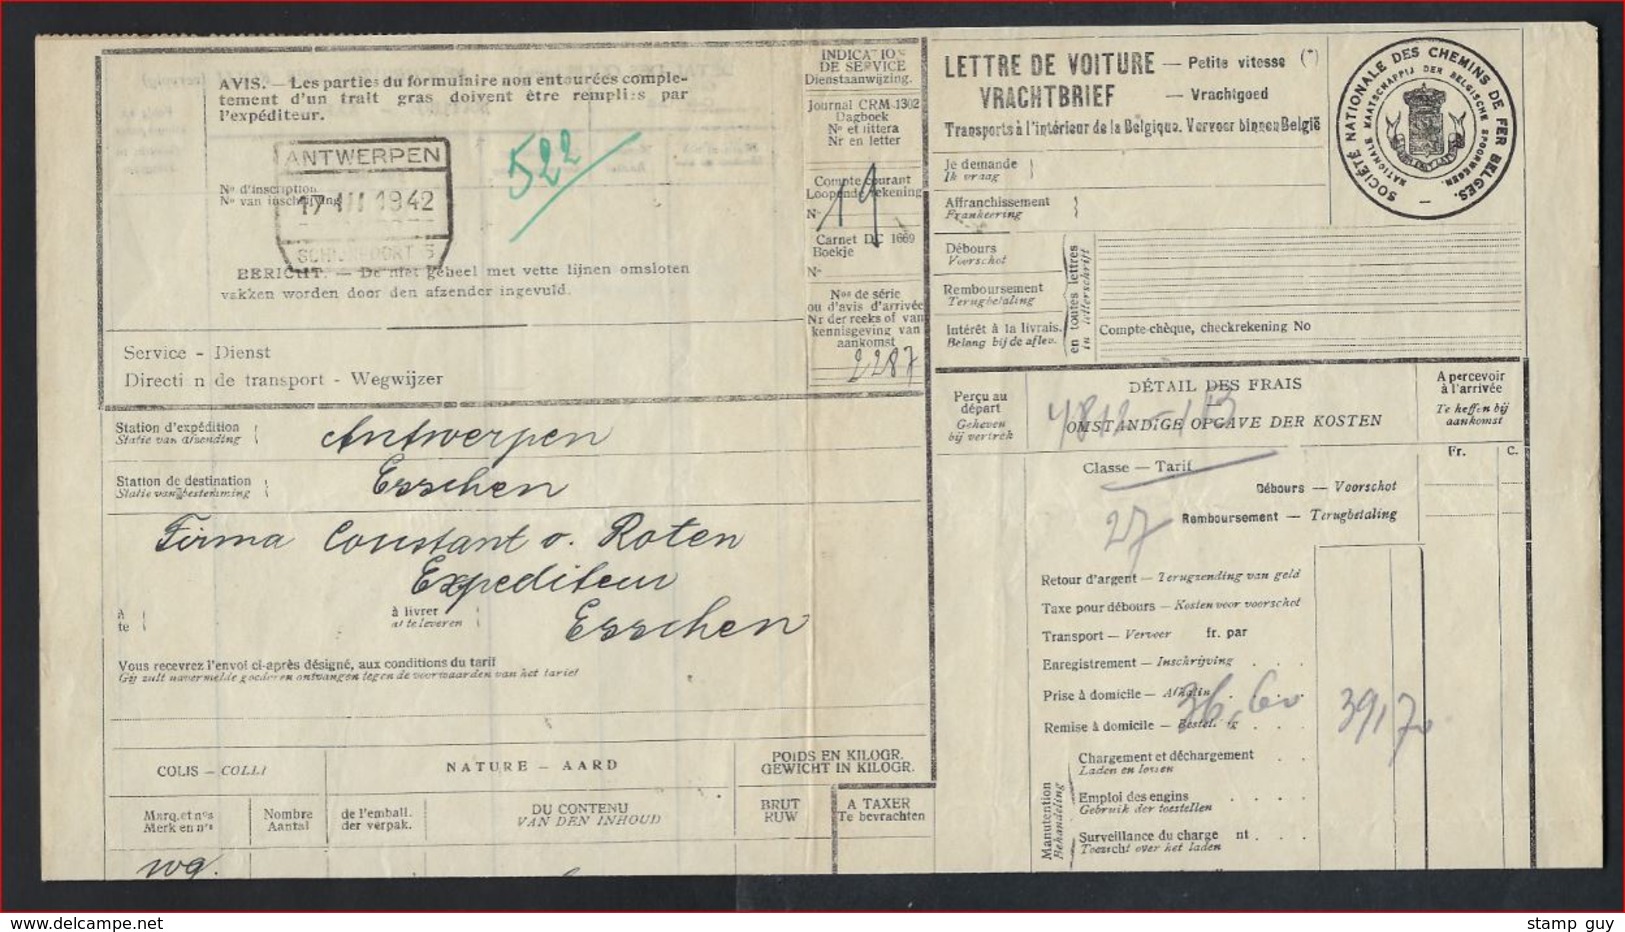 AVIS. — Les parties du formulaire non entourées comple-
tement d'un trait gras doivent être remplies par
l'expéditeur.
ANTWERPEN
522
No d'inscription
No van inschrijving
17 III 1942
BERICHT. — De niet geheel met vette lijnen omsloten
vakken worden door den afzender ingevuld.
Service - Dienst
Directi n de transport - Wegwijzer
INDICATION
DE SERVICE
Dienstaanwijzing.
Journal CRM 1302
Dagboek
No et littera
Nr en letter
Compte courant
Loopende rekening
No
19
Carnet DC 1669
Boekje
No
Nos de série
ou d'avis d'arrivée
Nr der reeks of van
kennisgeving van
aankomst
2287
LETTRE DE VOITURE — Petite vitesse (*)
VRACHTBRIEF — Vrachtgoed
Transports à l'intérieur de la Belgique. Vervoer binnen België
SOCIÉTÉ NATIONALE DES CHEMINS DE FER BELGES.
NATIONALE MAATSCHAPPIJ DER BELGISCHE SPOORWEGEN.
Je demande
Ik vraag
Affranchissement
Frankeering
Débours
Voorschot
Remboursement
Terugbetaling
Intérêt à la livrais.
Belang bij de aflev.
en toutes lettres
in letterschrift
Compte-chèque, checkrekening No
Station d'expédition
Statie van afzending
Antwerpen
Station de destination
Statie van bestemming
Esschen
Firma Constant v. Roten
Expediteur
à
te
à livrer
af te leveren
Esschen
Vous recevrez l'envoi ci-après désigné, aux conditions du tarif
Gij zult navermelde goederen ontvangen tegen de voorwaarden van het tarief
COLIS — COLLI
NATURE — AARD
POIDS EN KILOGR.
GEWICHT IN KILOGR.
Marq. et nos
Merk en nrs
Nombre
Aantal
de l'emball.
der verpak.
DU CONTENU
VAN DEN INHOUD
BRUT
RUW
A TAXER
Te bevrachten
wg.
Perçu au
départ
Geheven
bij vertrek
DÉTAIL DES FRAIS
OMSTANDIGE OPGAVE DER KOSTEN
A percevoir
à l'arrivée
Te heffen bij
aankomst
Fr. C.
Classe — Tarif
Débours — Voorschot
27
Remboursement — Terugbetaling
Retour d'argent — Terugzending van geld
Taxe pour débours — Kosten voor voorschot
Transport — Vervoer fr. par
Enregistrement — Inschrijving . . .
Prise à domicile — Afhalin . . .
36,60
39,70
Remise à domicile — Bestel g . . .
Manutention
Behandeling
Chargement et déchargement
Laden en lossen
Emploi des engins . . . .
Gebruik der toestellen
Surveillance du charge nt . . .
Toezicht over het laden
stamp guy